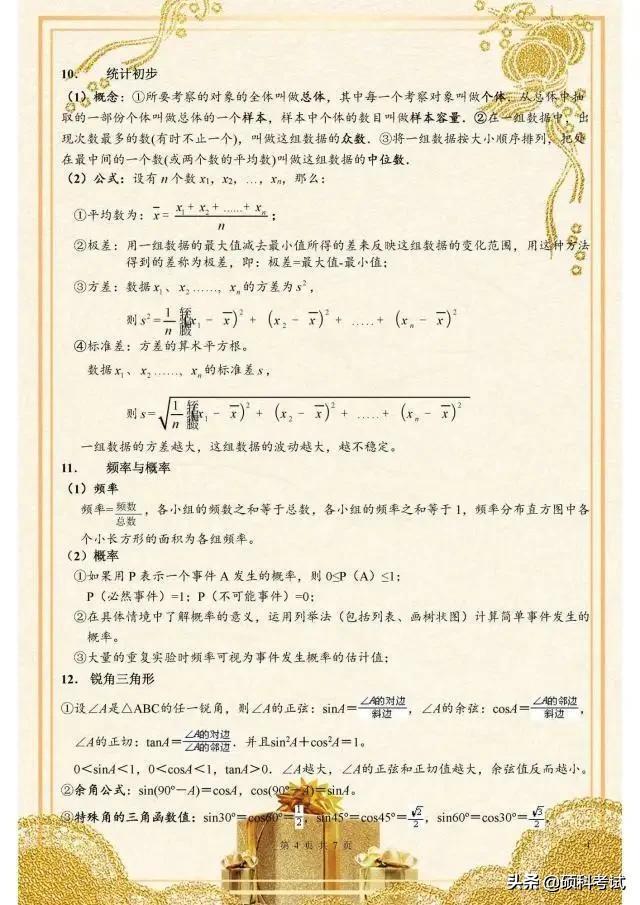 10. 统计初步
(1)概念：①所要考察的对象的全体叫做总体，其中每一个考察对象叫做个体．从总体中抽
取的一部份个体叫做总体的一个样本，样本中个体的数目叫做样本容量．②在一组数据中，出
现次数最多的数(有时不止一个)，叫做这组数据的众数．③将一组数据按大小顺序排列，把处
在最中间的一个数(或两个数的平均数)叫做这组数据的中位数．
(2)公式：设有 n 个数 x₁，x₂，…，xₙ，那么：
①平均数为：x̄ = (x₁ + x₂ + ...... + xₙ) / n；
②极差：用一组数据的最大值减去最小值所得的差来反映这组数据的变化范围，用这种方法
得到的差称为极差，即：极差=最大值-最小值；
③方差：数据 x₁、x₂ ……, xₙ 的方差为 s²，
则 s² = 1/n (x₁ − x̄)² + (x₂ − x̄)² + ..... + (xₙ − x̄)²
④标准差：方差的算术平方根。
数据 x₁、x₂ ……, xₙ 的标准差 s，
则 s = √(1/n (x₁ − x̄)² + (x₂ − x̄)² + ..... + (xₙ − x̄)²)
一组数据的方差越大，这组数据的波动越大，越不稳定。
11. 频率与概率
(1)频率
频率=频数/总数，各小组的频数之和等于总数，各小组的频率之和等于 1，频率分布直方图中各
个小长方形的面积为各组频率。
(2)概率
①如果用 P 表示一个事件 A 发生的概率，则 0≤P（A）≤1；
P（必然事件）=1；P（不可能事件）=0；
②在具体情境中了解概率的意义，运用列举法（包括列表、画树状图）计算简单事件发生的
概率。
③大量的重复实验时频率可视为事件发生概率的估计值；
12. 锐角三角形
①设∠A是△ABC的任一锐角，则∠A的正弦：sinA＝∠A的对边/斜边，∠A的余弦：cosA＝∠A的邻边/斜边，
∠A的正切：tanA＝∠A的对边/∠A的邻边．并且sin²A＋cos²A＝1。
0＜sinA＜1，0＜cosA＜1，tanA＞0．∠A越大，∠A的正弦和正切值越大，余弦值反而越小。
②余角公式：sin(90º－A)＝cosA，cos(90º－A)＝sinA。
③特殊角的三角函数值：sin30º＝cos60º＝1/2，sin45º＝cos45º＝√2/2，sin60º＝cos30º＝√3/2，
第 4 页 共 7 页
4
头条 @硕科考试